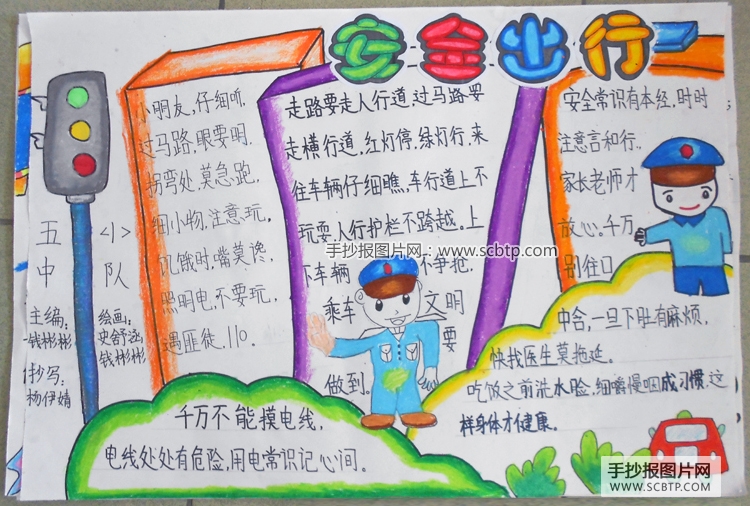 安全出行
五<1>
中队
主编:
钱彬彬
绘画:
史舒涵
钱彬彬
抄写:
杨伊婧
小朋友,仔细听,
过马路,眼要明,
拐弯处,莫急跑,
细小物,注意玩,
饥饿时,嘴莫馋,
照明电,不要玩,
遇匪徒,110。
走路要走人行道,过马路要
走横行道,红灯停,绿灯行,来
往车辆仔细瞧,车行道上不
玩耍,人行护栏不跨越。上
下车辆 不争抢,
乘车 文明
要
做到。
安全常识有本经,时时
注意言和行,
家长老师才
放心。千万
别住口
中含,一旦下肚有麻烦,
快找医生莫拖延。
吃饭之前洗水脸,细嚼慢咽成习惯,这
样身体才健康。
千万不能摸电线,
电线处处有危险,用电常识记心间。
手抄报图片网:www.scbtp.com
手抄报图片网
WWW.SCBTP.COM